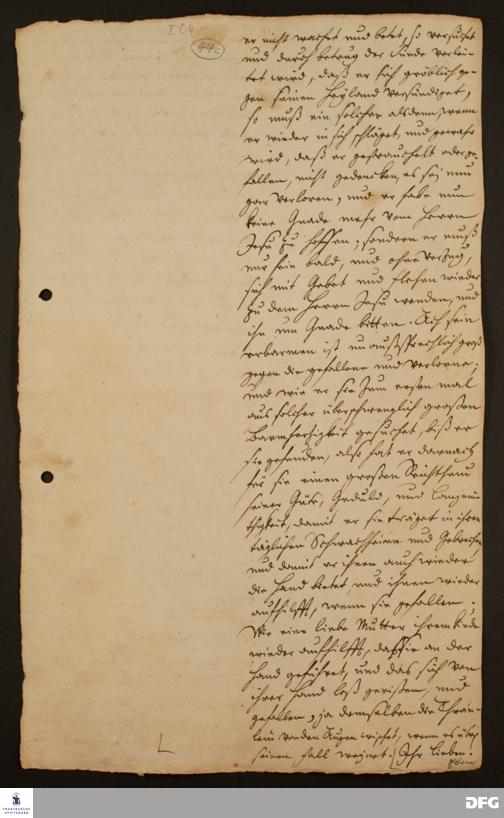 I C 4
44c
er nicht wachet und betet, so versucht
und durch betrug der Sünde verlei-
tet wird, daß er sich gröblich ge-
gen seinen Heyland versündiget,
so muß ein solcher alsdenn, wenn
er wieder in sich schläget, und gewahr
wird, daß er gestrauchelt oder ge-
fallen, nicht gedencken, es sey nun
gar verloren, und er habe nun
keine Gnade mehr vom Herrn
Jesu zu hoffen; sondern er muß
nur fein bald, und ohne Verzug,
sich mit Gebet und flehen wieder
zu dem Herrn Jesu wenden, und
ihn um Gnade bitten. Ach sein
erbarmen ist unaussprechlich groß
gegen die gefallene und verlorne;
und wie er sie zum ersten mal
aus solcher überschwenglich großen
Barmhertzigkeit gesuchet, biß er
sie gefunden, also hat er darnach
für sie einen großen Reichthum
seiner Güte, Geduld, und Langmü-
thigkeit, damit er sie träget in ihren
täglichen Schwachheiten und Gebrechen,
und damit er ihnen auch wieder
die Hand bietet und ihnen wieder
aufhilfft, wenn sie gefallen;
Wie eine liebe Mutter ihrem Kinde
wieder aufhilfft, daß sie an der
Hand geführet, und das sich von
ihrer Hand loß gerißen, und
gefallen, ja demselben die Thrän-
lein von den Augen wischet, wenn es über
seinen fall weinet. Ihr Lieben!
FRANCKESCHE STIFTUNGEN
DFG